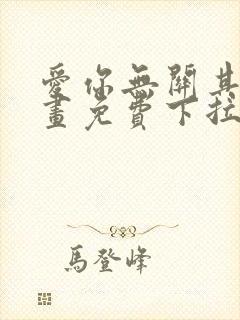 愛你無關其
畫免費下拉
馬登峰